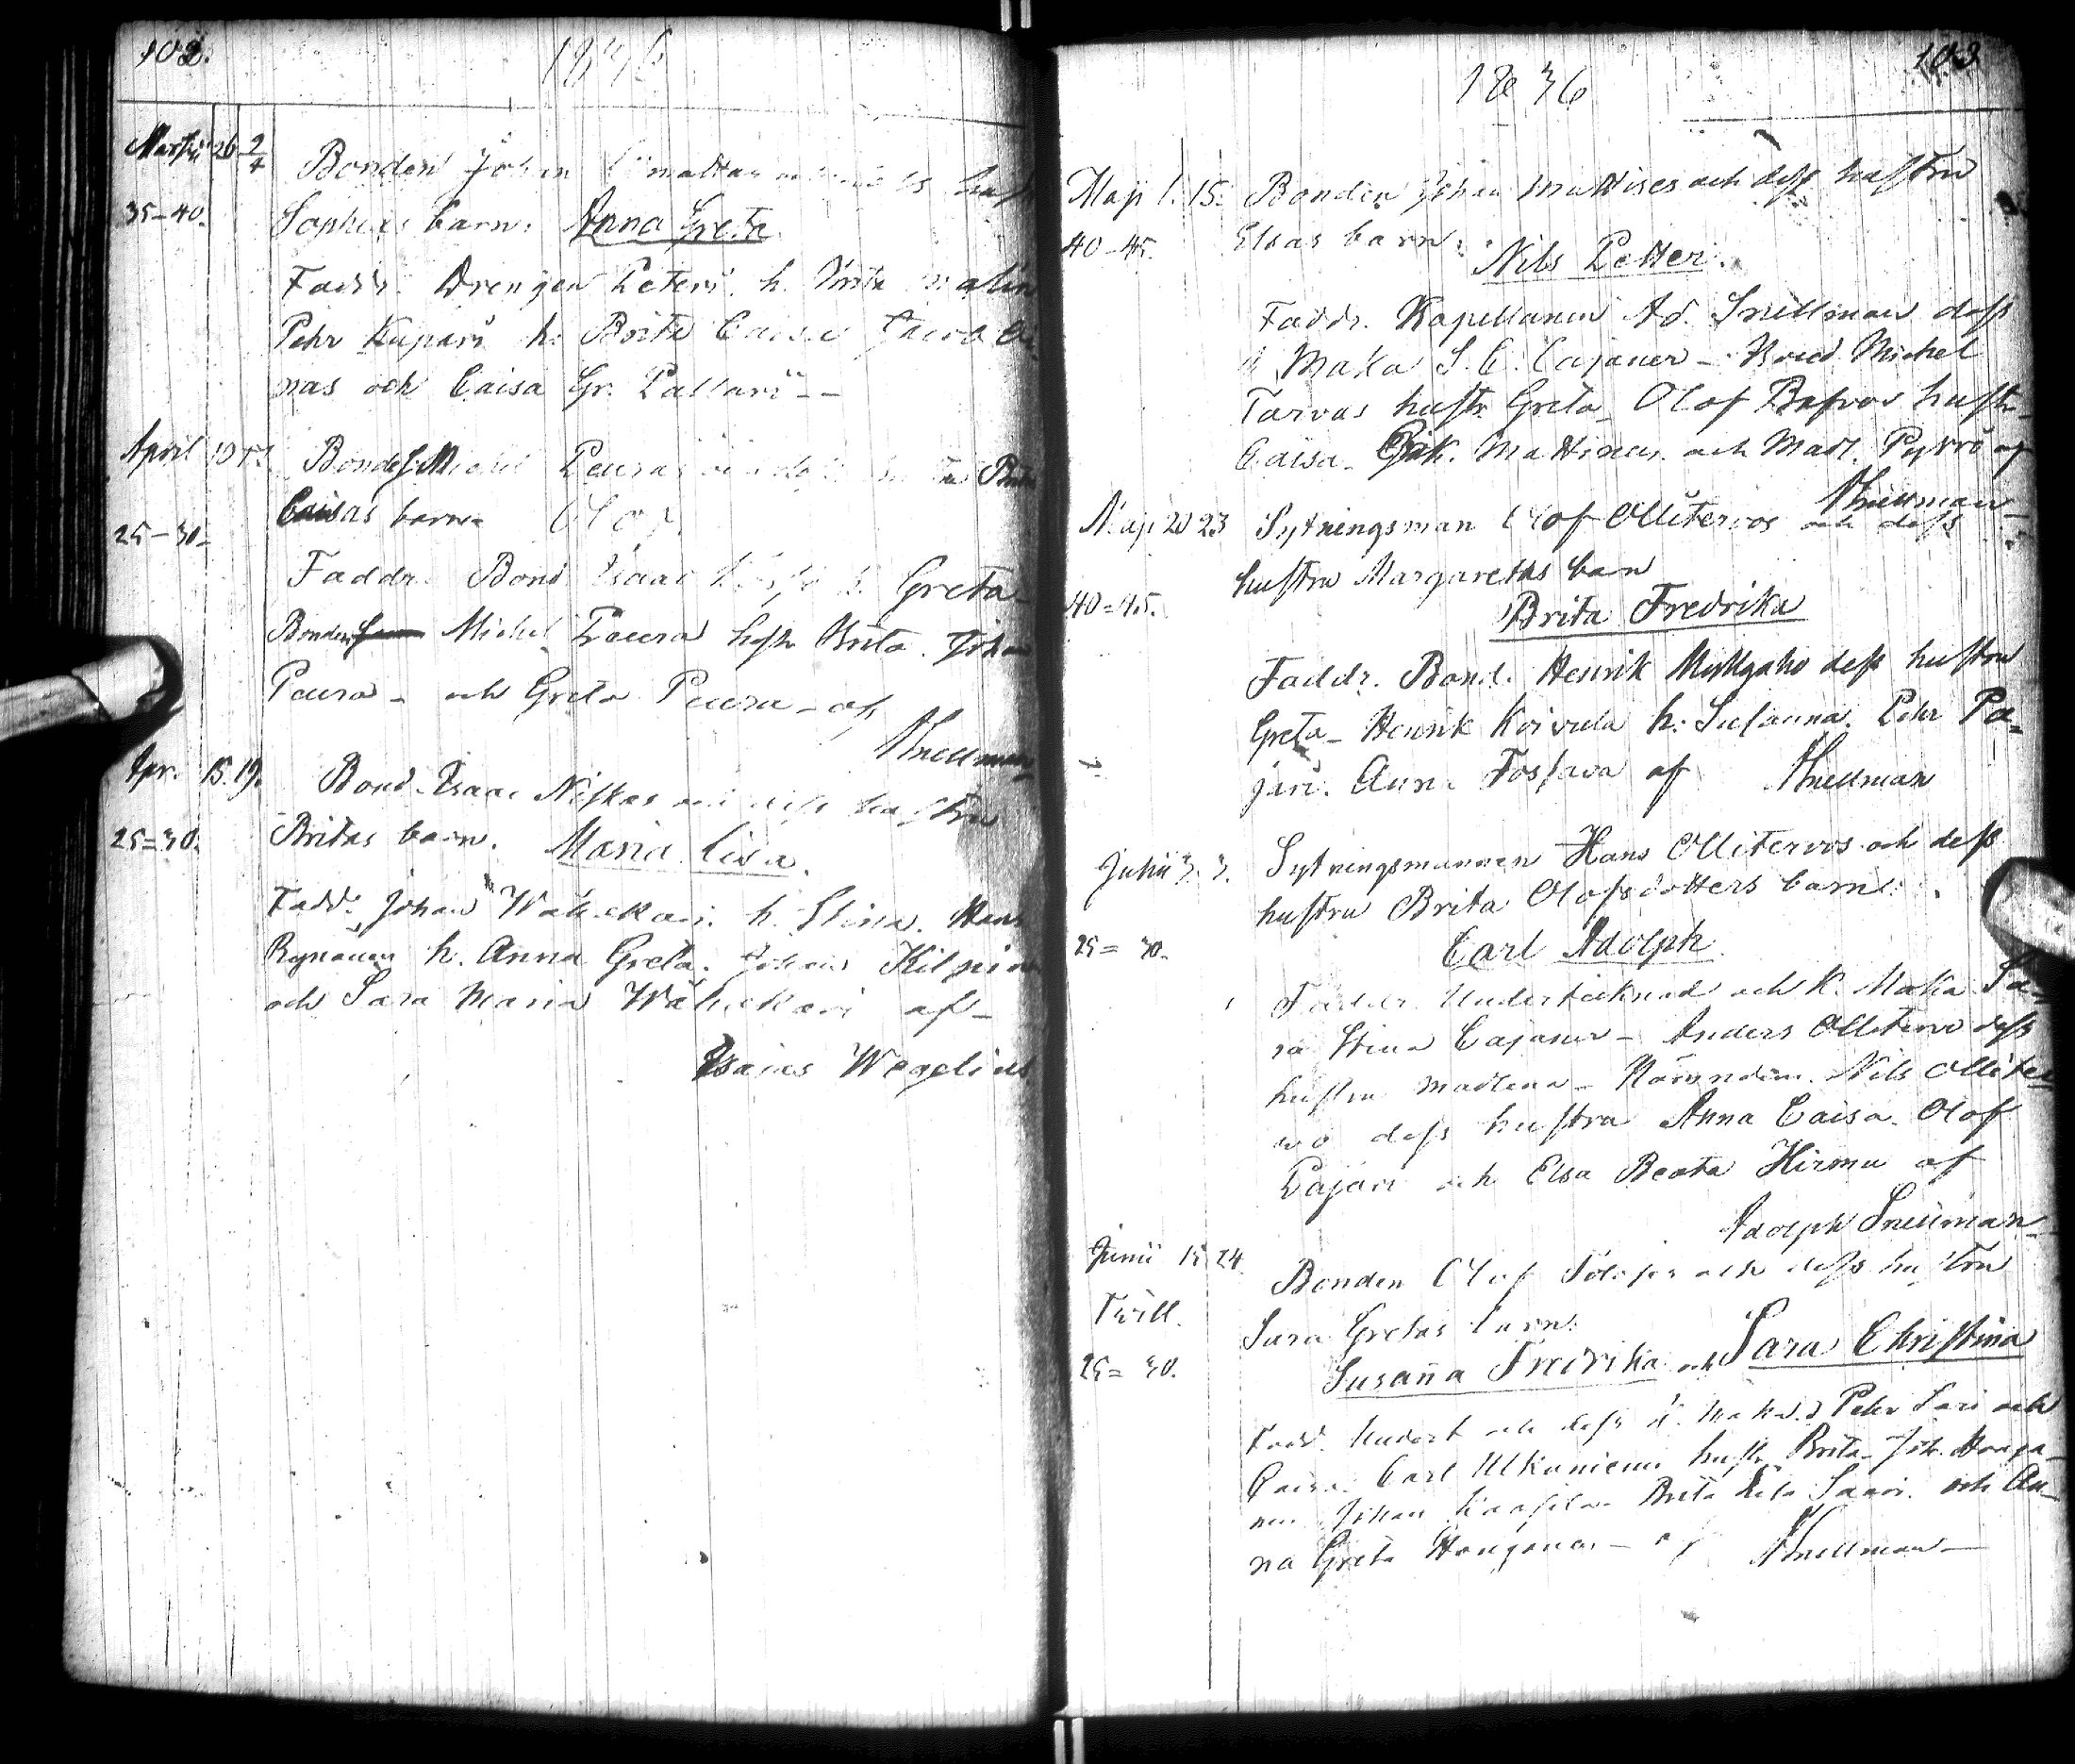 102.
1836
Martii 26 2/4 Bonden Johan
35-40. Sophias barn: Anna Greta
Faddr. Drengen Peteri h. Brita
Pehr Kupari h. Brita Caisa Jacob
nas och Caisa Gr. Pallari
April 10 Bondes. Michel Peuras och dess hustru Brita
Caisas barn Olof
25-30-
Faddr. Bond Isaac h. Greta
Bonden Michel Peura hustr Brita. Johan
Peura - och Greta Peura - af
ASnellman
Apr. 15. 19. Bond. Isaac Niskas och dess hustru
25=30. Britas barn. Maria Lisa.
Fadd. Johan Wähäkari. h. Stina. Hans
h. Anna Greta. Johan
och Sara Maria Wähäkari af-
Esaias Wegelius
103
1836
Maji 1. 15. Bonden Johan Mattises och dess hustru
40-45. Elsas barn:
Nils Petter.
Faddr. Kapellanen Ad. Snellman dess
k Maka S. C. Cajaner - Bond. Michel
Tarvas hustr. Greta Olof hustr
Caisa. Mattinas och Madl. Pyrrö af
ASnellman-
Maji 20 23 Sytningsman Olof Ollitervos och dess
hustru Margarethas barn
40=45.
Brita Fredrika
Faddr. Bond. Henrik dess hustru
Greta - Henrik Koivula h: Susanna. Pehr Pa-
jari. Ann. af ASnellman
Junii 3. 3. Sytningsmannen Hans Ollitervos och dess
hustru Brita Olofsdotters barn:
25=30. Carl Adolph.
Faddr. Undertecknad och K. Maka Sa-
ra Stina Cajaner - Anders Ollitervo dess
hustru Madlena - Nämndem. Nils Olliter
wo dess hustru Anna Caisa. Olof
Pajari och Elsa Beata Hirmu af
Adolph Snellman-
Junii 15 24. Bonden Olof och dess hustru
Twill. Sara Gretas barn:
25=30. Susanna Fredrika och Sara Christina
Fadd. Undert och dess K. Maka. Pehr Sari och
Caisa. Carl Ulkuniemi hustr Brita. Joh. Honga-
nen Johan Brita Lisa Saari. och An-
na Greta Honganen - af ASnellman-